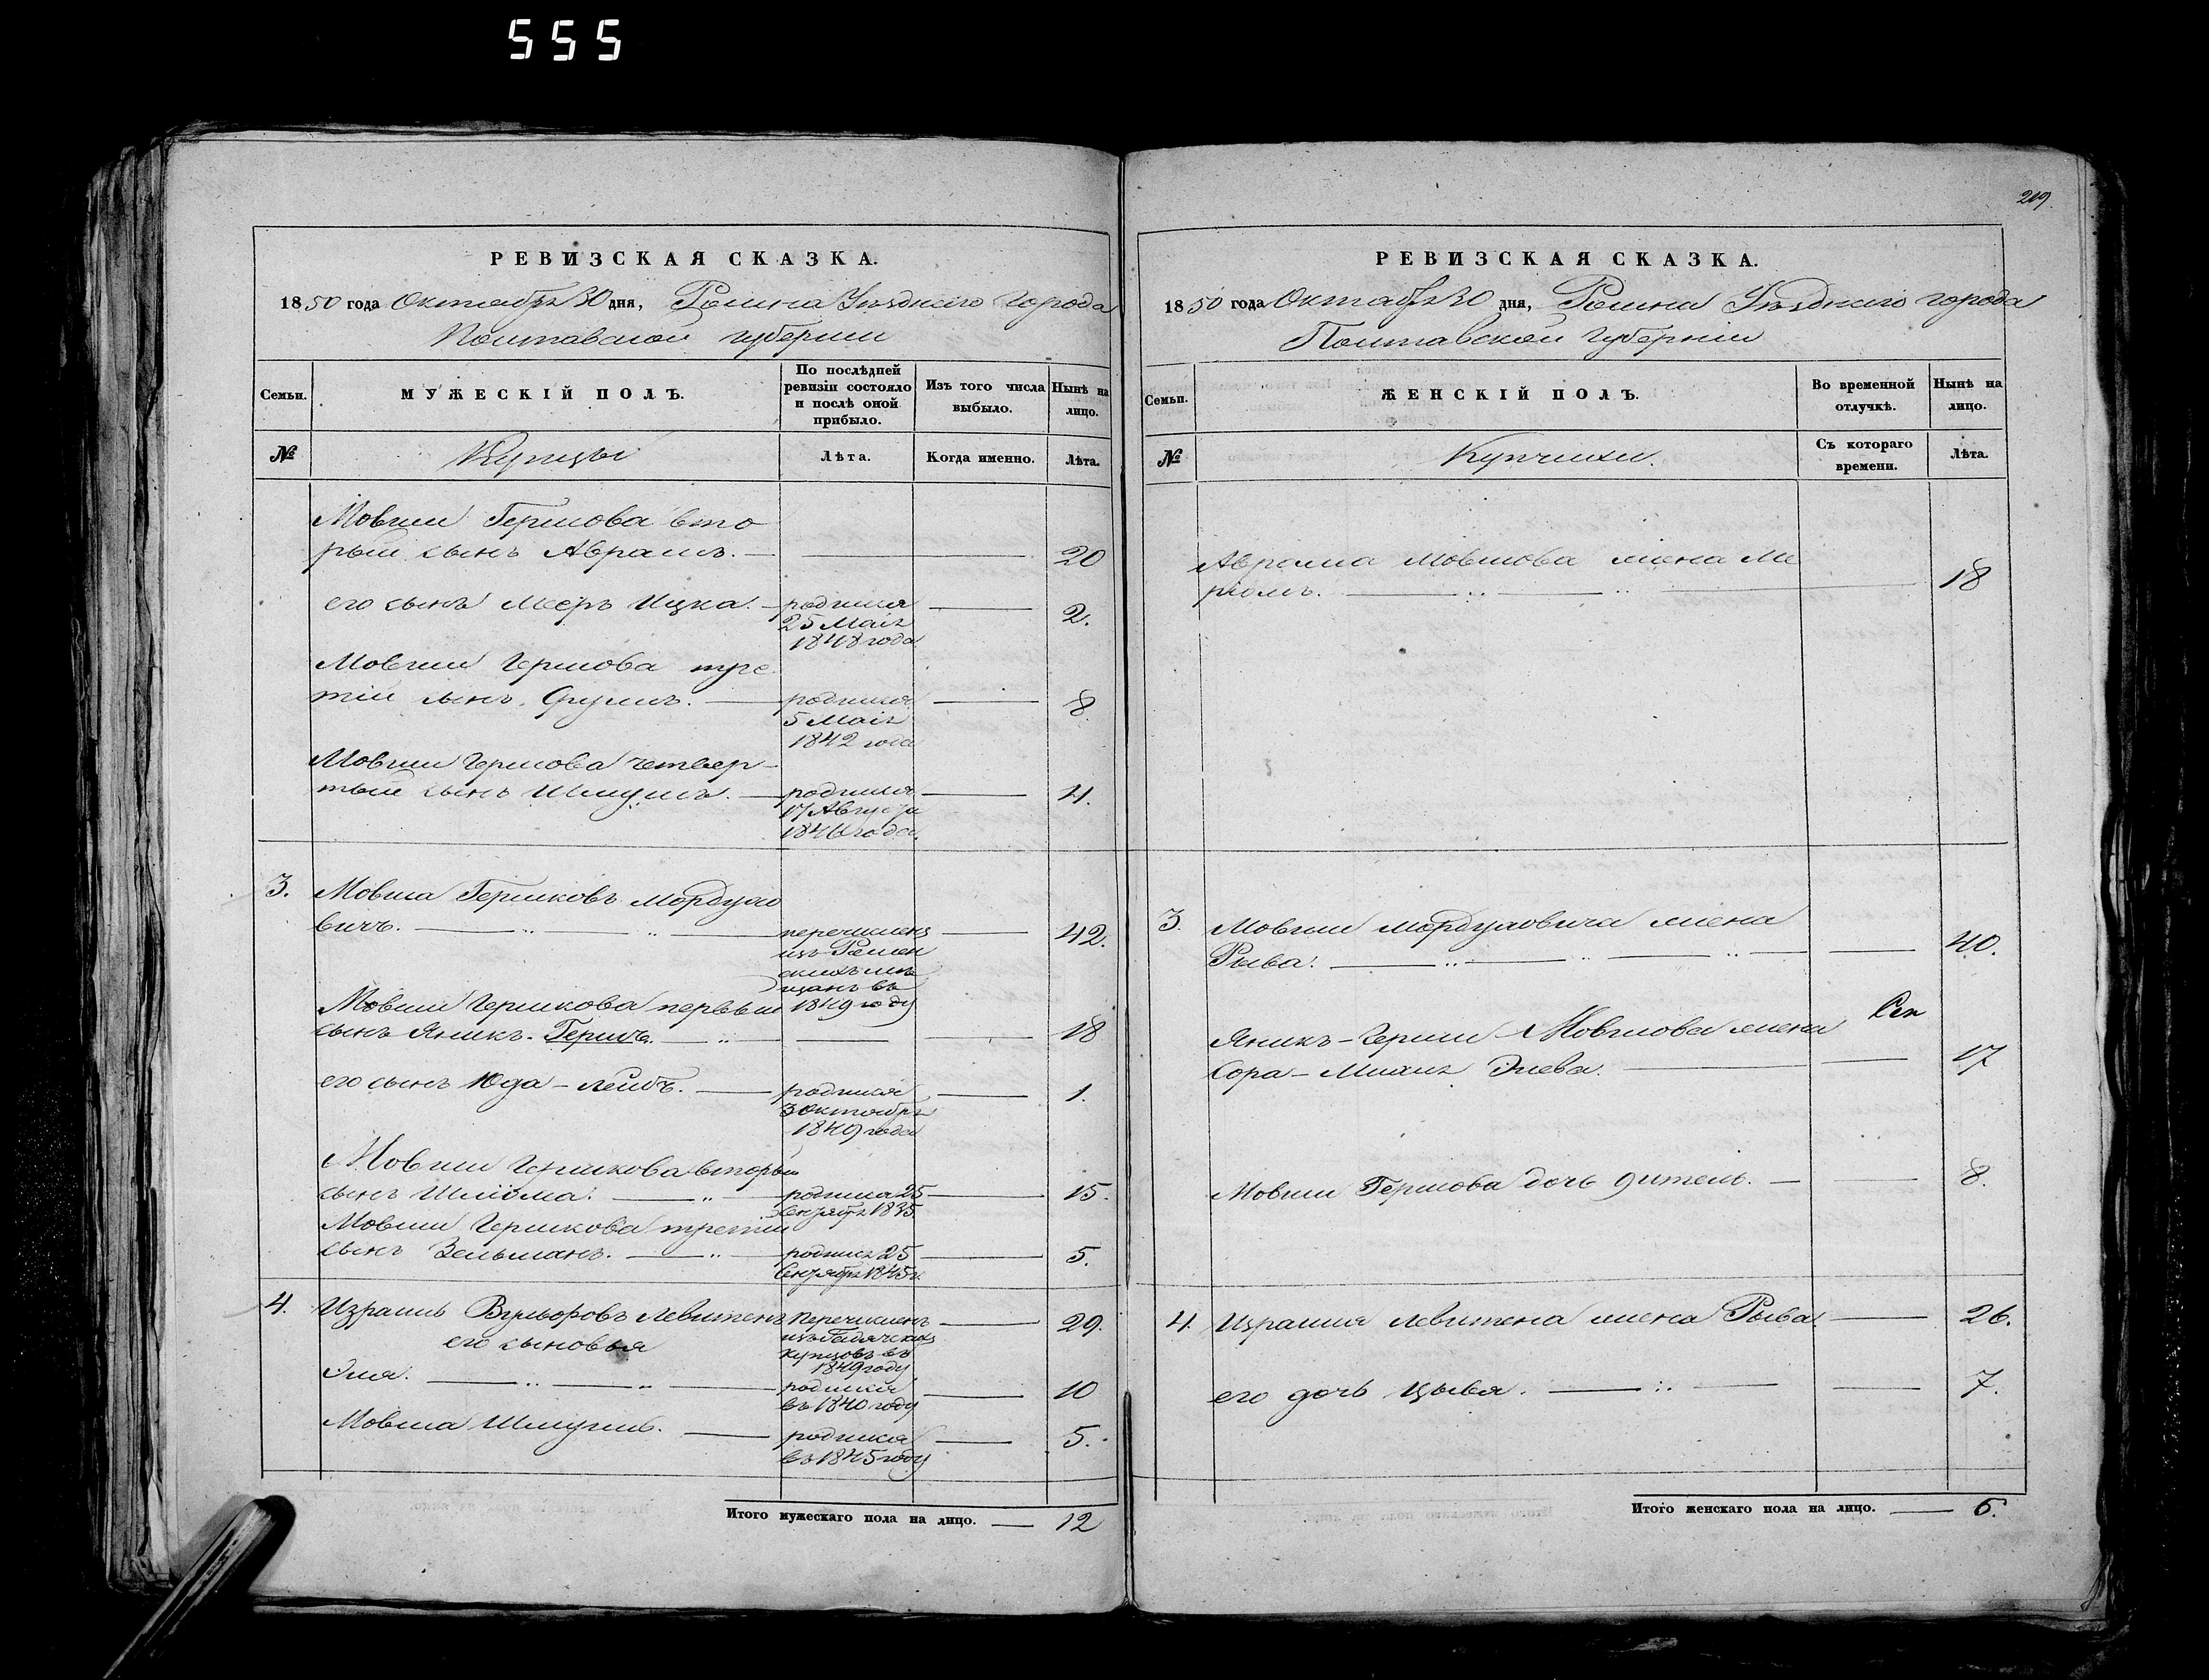 555
219.
РЕВИЗСКАЯ СКАЗКА.
1850 года Октября 30 дня, Ромна Уѣзднаго города
Полтавской губерніи
Семьи.
МУЖЕСКІЙ ПОЛЪ.
По послѣдней ревизіи состояло и послѣ оной прибыло.
Изъ того числа выбыло.
Нынѣ на лицо.
№
Купцы
Лѣта.
Когда именно.
Лѣта.
Мовши Гершова вто
рый сынъ Абрамъ. 20
его сынъ Мееръ Ицка. родился 2.
25 Мая
1848 года
Мовши Гершова тре
тій сынъ Фруимъ. родился 8.
5 Мая
1842 года
Мовши Гершова четвер-
тый сынъ Шмуилъ. родился 4.
17 Августа
1846 года.
3. Мовша Гершковъ Мордухо
вичъ. перечисленъ 42.
изъ Ромен
скихъ мѣ
щанъ въ
1849 году
Мовши Гершкова первый
сынъ Яникъ-Гершъ. 18
его сынъ Юда-Лейбъ. родился 1.
3 Октября
1849 года
Мовши Гершкова вторый
сынъ Шліома. родился 25 15.
Сентября 1835
Мовши Гершкова третій
сынъ Зельманъ. родился 25 5.
Сентября 1845 г.
4. Израиль Вульфовъ Левитенъ Перечисленъ 29.
изъ Гадячских
купцовъ въ
1849 году
его сыновья
Эля. родился 10
въ 1840 году
Мовша Шмуиль. родился 5.
въ 1845 году
Итого мужескаго пола на лицо. 12
РЕВИЗСКАЯ СКАЗКА.
1850 года Октября 30 дня, Ромна Уѣзднаго города
Полтавской Губерніи
Семьи.
ЖЕНСКІЙ ПОЛЪ.
Во временной отлучкѣ.
Нынѣ на лицо.
№
Купчихи.
Съ котораго времени.
Лѣта.
Абрама Мовшова жена Ме
риомъ. 18
3. Мовши Мордуховича жена
Рыва. 40.
Яникъ-Герши Мовшова жена
Сора-Михля Элева. 17
Мовши Гершова дочь 8.
4. Израиля Левитена жена Рыва. 26.
его дочь Цывя. 7.
Итого женскаго пола на лицо. 6.